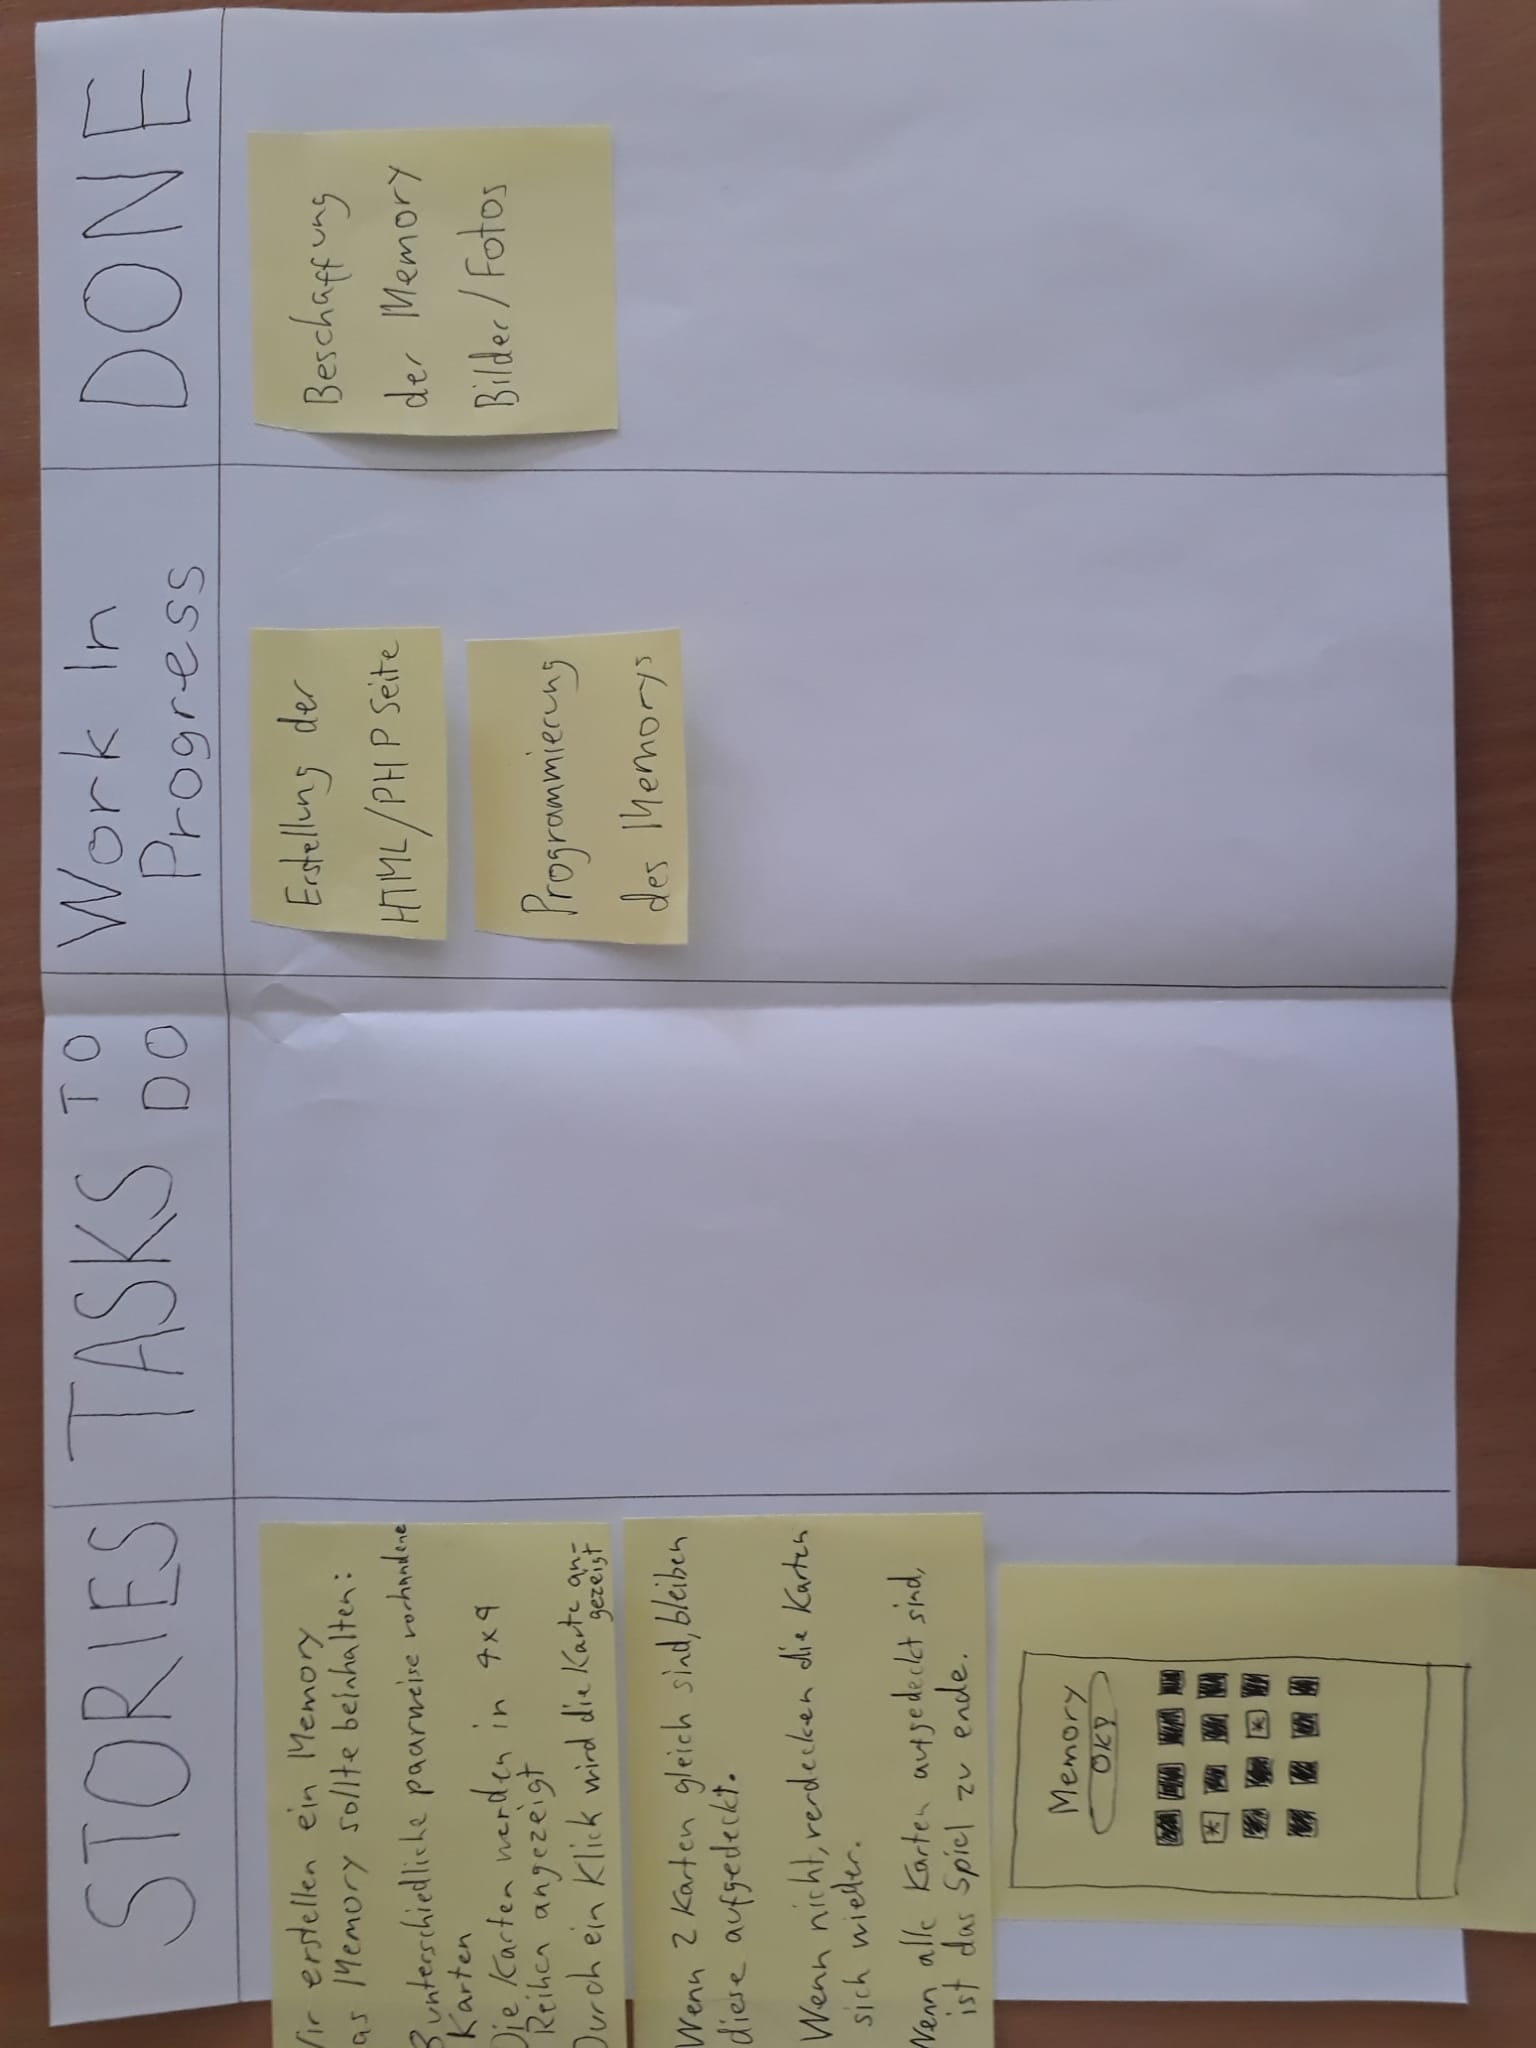 STORIES
TASKS TO DO
Work In Progress
DONE
ir erstellen ein Memory
as Memory sollte beinhalten:
unterschiedliche paarweise vorhandene
Karten
Die Karten werden in 4x4
Reihen angezeigt
Durch ein Klick wird die Karte an-
gezeigt
Wenn 2 Karten gleich sind, bleiben
diese aufgedeckt.
Wenn nicht, verdecken die Karten
sich wieder.
Wenn alle Karten aufgedeckt sind,
ist das Spiel zu ende.
Memory
Erstellung der
HTML/PHP Seite
Programmierung
des Memorys
Beschaffung
der Memory
Bilder/Fotos